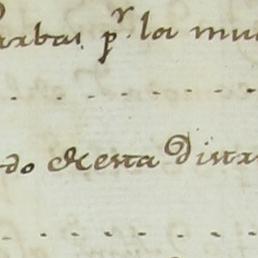 arbas pr los mu
do de esta Distr